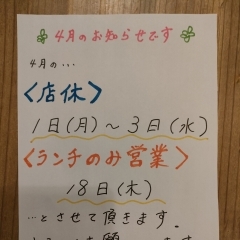 4月のお知らせです
4月の…
〈店休〉
1日(月)～3日(水)
〈ランチのみ営業〉
18日(木)
…とさせて頂きます。